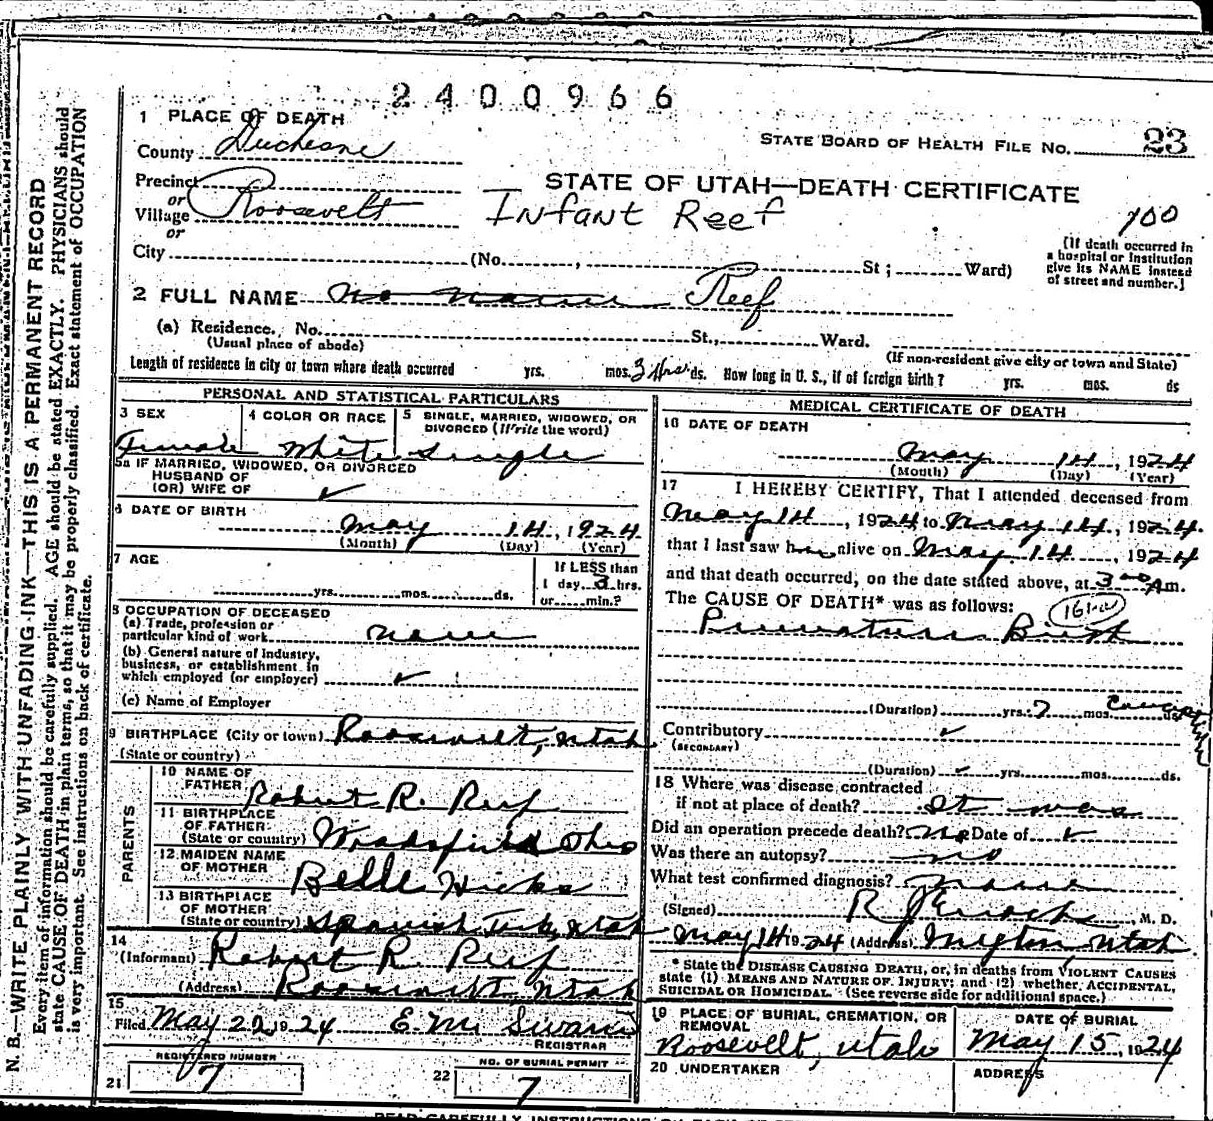 2400966
1 PLACE OF DEATH
STATE BOARD OF HEALTH FILE NO. 23
County Duchesne
Precinct
or
Village Roosevelt
STATE OF UTAH—DEATH CERTIFICATE
Infant Reef
100
or
City (No. , St ; Ward)
[If death occurred in
a hospital or institution
give its NAME instead
of street and number.]
2 FULL NAME No name Reef
(a) Residence. No. St., Ward.
(Usual place of abode)
(If non-resident give city or town and State)
Length of residence in city or town where death occurred yrs. mos. 3 Hrs ds. How long in U. S., if of foreign birth? yrs. mos. ds
PERSONAL AND STATISTICAL PARTICULARS
3 SEX
Female
4 COLOR OR RACE
White
5 SINGLE, MARRIED, WIDOWED, OR
DIVORCED (Write the word)
Single
5a IF MARRIED, WIDOWED, OR DIVORCED
HUSBAND OF
(OR) WIFE OF ✓
6 DATE OF BIRTH
May 14, 1924
(Month) (Day) (Year)
7 AGE
yrs. mos. ds.
If LESS than
1 day, 3 hrs.
or min.?
8 OCCUPATION OF DECEASED
(a) Trade, profession or
particular kind of work none
(b) General nature of Industry,
business, or establishment in
which employed (or employer) ✓
(c) Name of Employer
9 BIRTHPLACE (City or town) Roosevelt, Utah
(State or country)
PARENTS
10 NAME OF
FATHER Robert R. Reef
11 BIRTHPLACE
OF FATHER
(State or country) Woodsfield Ohio
12 MAIDEN NAME
OF MOTHER Belle Hicks
13 BIRTHPLACE
OF MOTHER
(State or country) Spanish Fork, Utah
14
(Informant) Robert R. Reef
(Address) Roosevelt, Utah
15
Filed May 22, 1924 E. M. Swann
REGISTRAR
REGISTERED NUMBER
21 7
NO. OF BURIAL PERMIT
22 7
MEDICAL CERTIFICATE OF DEATH
16 DATE OF DEATH
May 14, 1924
(Month) (Day) (Year)
17 I HEREBY CERTIFY, That I attended deceased from
May 14, 1924 to May 14, 1924.
that I last saw her alive on May 14, 1924
and that death occurred, on the date stated above, at 3 00 A m.
The CAUSE OF DEATH* was as follows:
Premature Birth
(Duration) yrs. 7 mos. ds.
Contributory ✓
(SECONDARY)
(Duration) ✓ yrs. mos. ds.
18 Where was disease contracted
if not at place of death? It was
Did an operation precede death? No Date of ✓
Was there an autopsy? no
What test confirmed diagnosis? none
(Signed) , M. D.
May 14 1924 (Address) Myton, Utah
* State the DISEASE CAUSING DEATH, or, in deaths from VIOLENT CAUSES
state (1) MEANS AND NATURE OF INJURY; and (2) whether ACCIDENTAL,
SUICIDAL OR HOMICIDAL. (See reverse side for additional space.)
19 PLACE OF BURIAL, CREMATION, OR
REMOVAL
Roosevelt, Utah
DATE OF BURIAL
May 15, 1924
20 UNDERTAKER
ADDRESS
N. B.—WRITE PLAINLY WITH UNFADING INK—THIS IS A PERMANENT RECORD
Every item of information should be carefully supplied. AGE should be stated EXACTLY. PHYSICIANS should
state CAUSE OF DEATH in plain terms, so that it may be properly classified. Exact statement of OCCUPATION
is very important. See instructions on back of certificate.